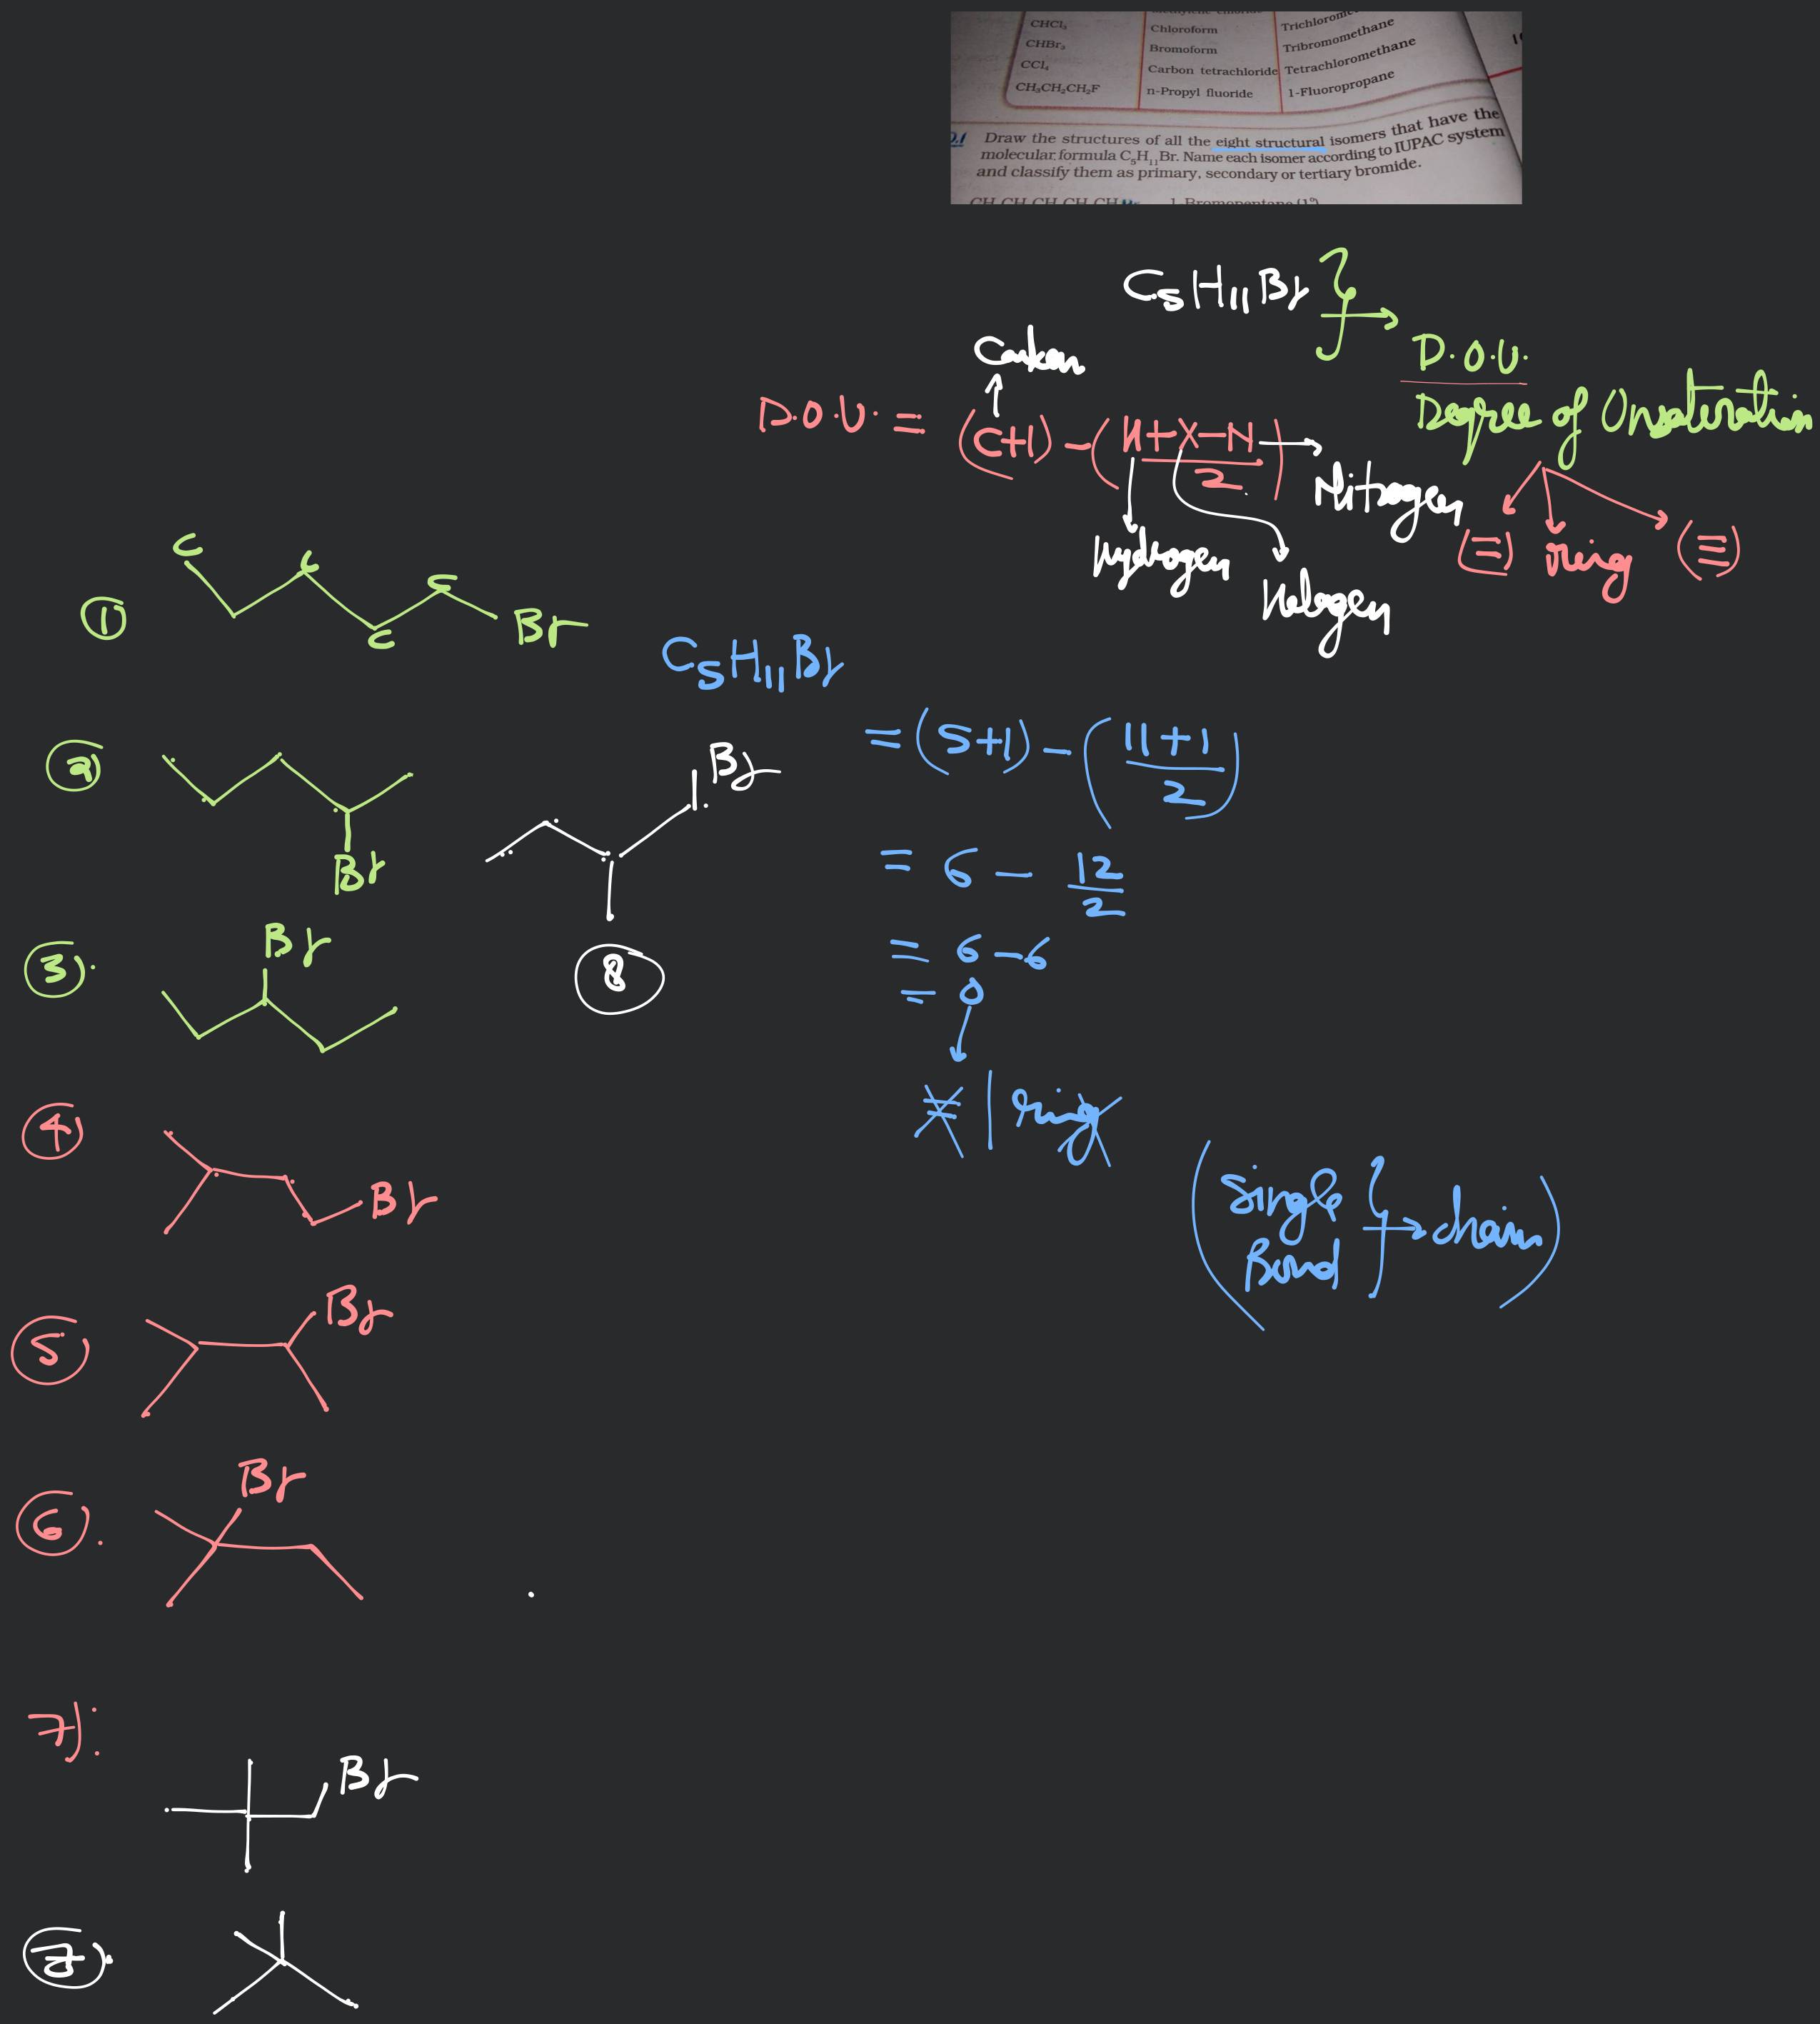 CHCl₃ Chloroform
CHBr₃ Bromoform Tribromomethane
CCl₄ Carbon tetrachloride Tetrachloromethane
CH₃CH₂CH₂F n-Propyl fluoride 1-Fluoropropane
Draw the structures of all the eight structural isomers that have the
molecular formula C₅H₁₁Br. Name each isomer according to IUPAC system
and classify them as primary, secondary or tertiary bromide.
1-Bromopentane (1°)
C₅H₁₁Br
D.O.U.
Degree of Unsaturation
(=) ring (≡)
Carbon
D.O.U. = (C+1) - (H+X-N / 2)
Nitrogen
Hydrogen
Halogen
① C C C C Br
C₅H₁₁Br
= (5+1) - (11+1 / 2)
= 6 - 12/2
= 6-6
= 0
ring
(Single Bond } → chain)
② Br
Br
⑧
③. Br
④ Br
⑤ Br
⑥. Br
7): Br
⑦).